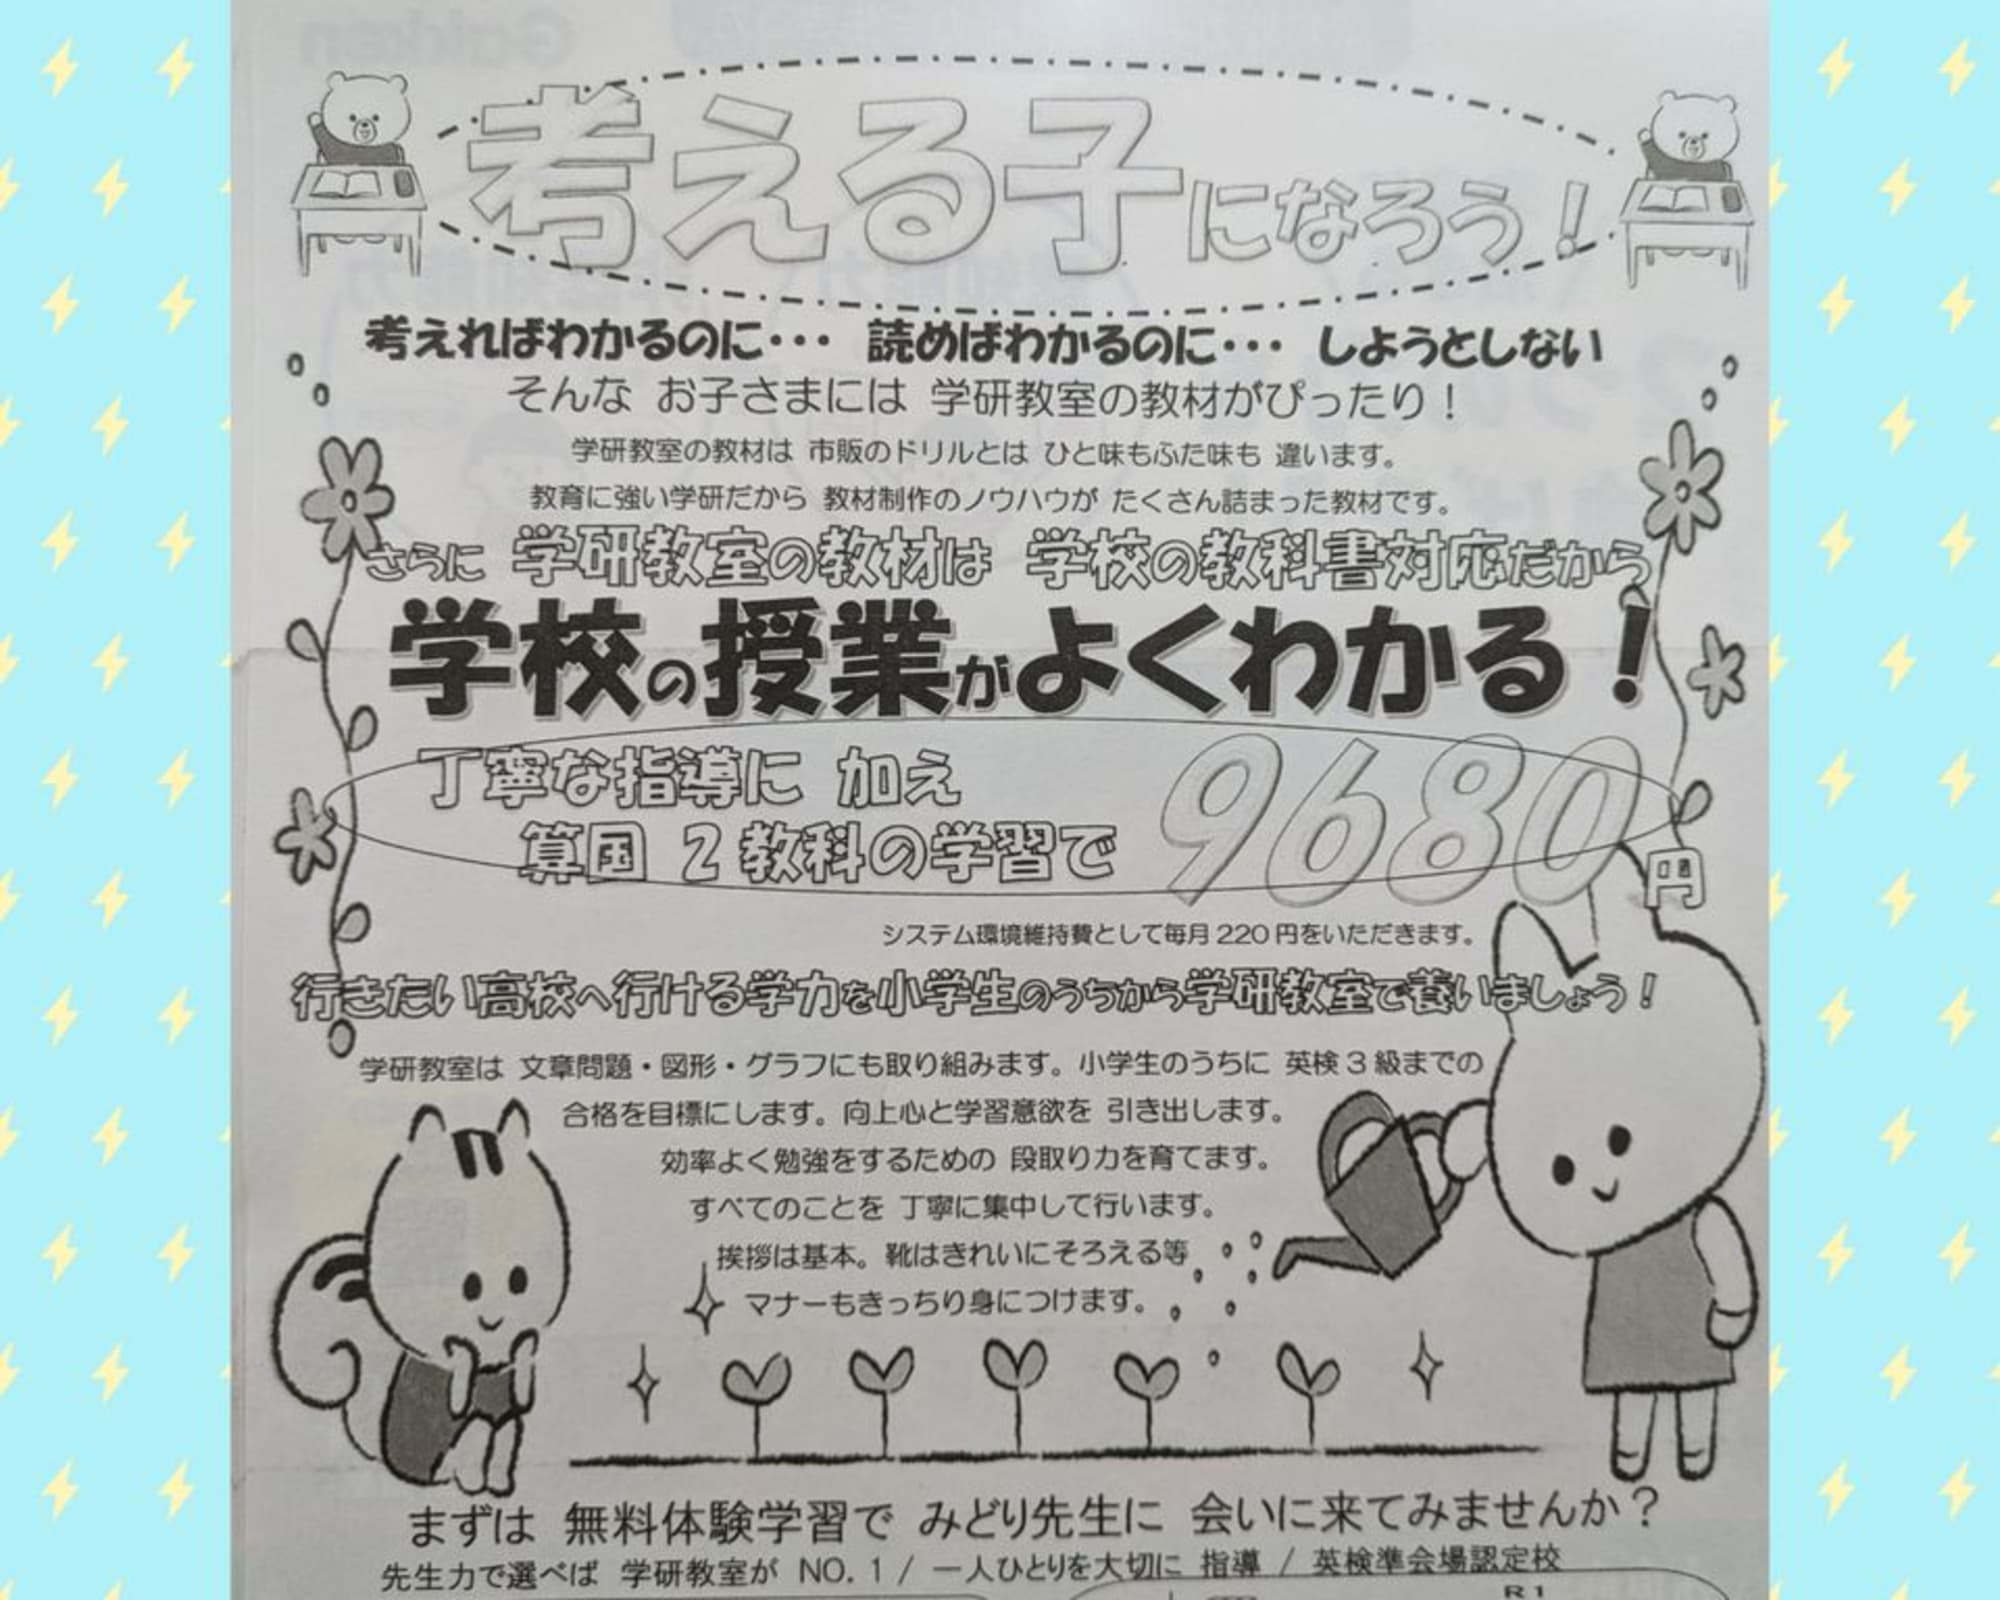 考える子になろう！
考えればわかるのに・・・ 読めばわかるのに・・・ しようとしない
そんな お子さまには 学研教室の教材がぴったり！
学研教室の教材は 市販のドリルとは ひと味もふた味も 違います。
教育に強い学研だから 教材制作のノウハウが たくさん詰まった教材です。
さらに 学研教室の教材は 学校の教科書対応だから
学校の授業がよくわかる！
丁寧な指導に 加え
算国 2 教科の学習で 9680円
システム環境維持費として毎月 220 円をいただきます。
行きたい高校へ行ける学力を小学生のうちから学研教室で養いましょう！
学研教室は 文章問題・図形・グラフにも取り組みます。小学生のうちに 英検 3 級までの
合格を目標にします。向上心と学習意欲を 引き出します。
効率よく勉強をするための 段取り力を育てます。
すべてのことを 丁寧に集中して行います。
挨拶は基本。靴はきれいにそろえる等
マナーもきっちり身につけます。
まずは 無料体験学習で みどり先生に 会いに来てみませんか？
先生力で選べば 学研教室が NO. 1 / 一人ひとりを大切に 指導 / 英検準会場認定校
R 1